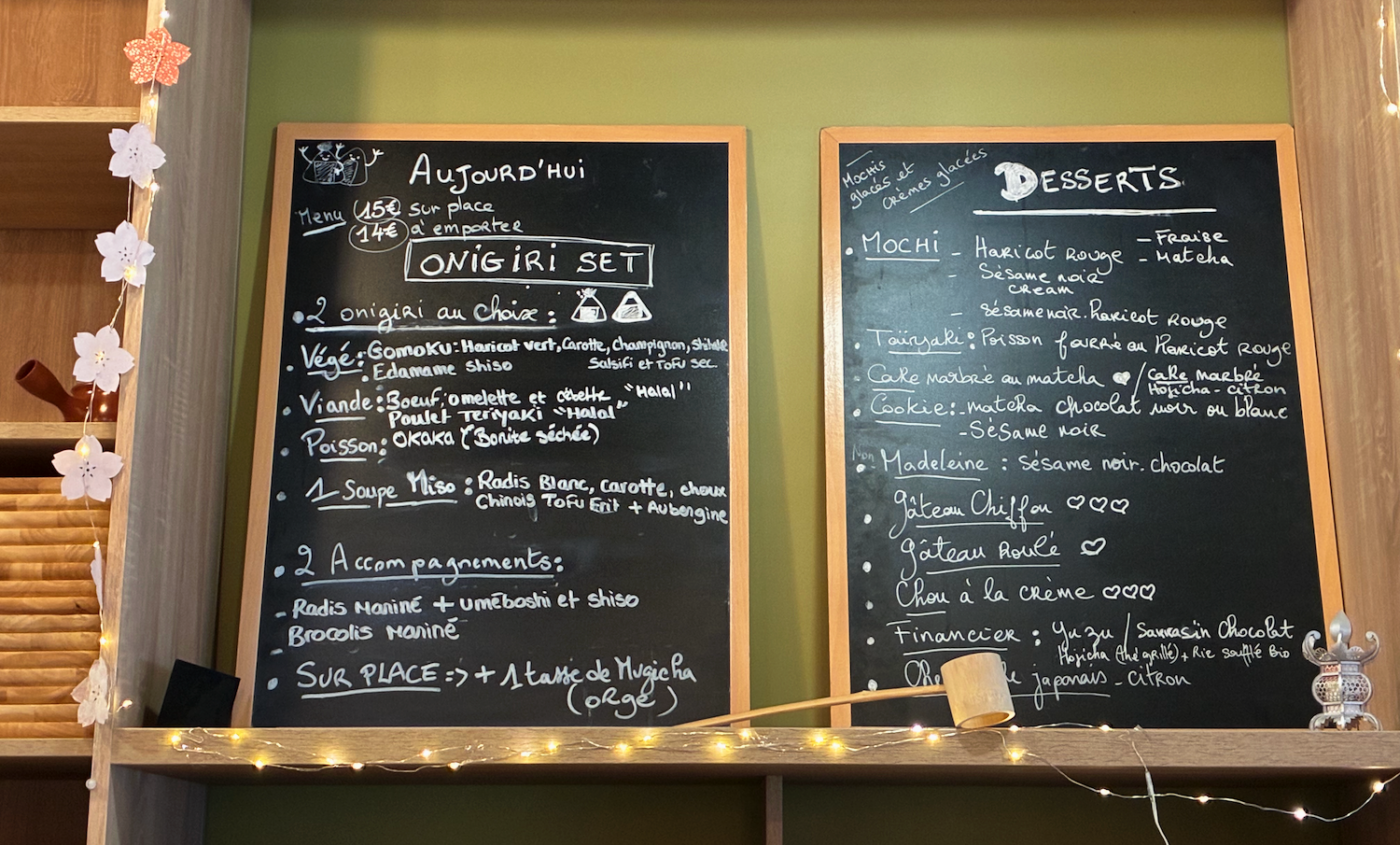 AUJOURD'HUI
Menu 15€ sur place
14€ à emporter
ONIGIRI SET
• 2 onigiri au choix :
• Végé : • Gomoku : Haricot vert, Carotte, Champignon, Shiitake
Salsifi et Tofu sec.
• Edamame shiso
• Viande : Boeuf, omelette et cébette "Halal"
Poulet Teriyaki "Halal"
• Poisson : Okaka (Bonite séchée)
• 1 Soupe Miso : Radis Blanc, carotte, choux
Chinois Tofu Frit + Aubergine
• 2 Accompagnements :
- Radis Mariné + uméboshi et shiso
- Brocolis Mariné
• SUR PLACE => + 1 tasse de Mugicha
(orge)
Mochis
glacés et
crèmes glacées
DESSERTS
• MOCHI - Haricot Rouge - Fraise
- Matcha
- Sésame noir
cream
- Sésame noir. Haricot Rouge
• Taiyaki : Poisson fourré au Haricot Rouge
• Cake marbré au matcha / Cake marbré
Hojicha - citron
• Cookie : - matcha chocolat noir ou blanc
- Sésame noir
• Madeleine : sésame noir. chocolat
• gâteau Chiffon ♡♡♡
• gâteau Roulé ♡
• Chou à la crème ♡♡♡
• Financier : Yuzu / Sarrasin Chocolat
Hojicha (thé grillé) + Riz Soufflé Bio
• japonais - citron